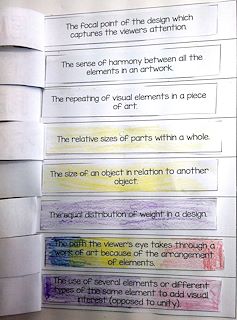 The focal point of the design which
captures the viewers attention.
The sense of harmony between all the
elements in an artwork.
The repeating of visual elements in a piece
of art.
The relative sizes of parts within a whole.
The size of an object in relation to another
object.
The equal distribution of weight in a design.
The path the viewer's eye takes through a
work of art because of the arrangement
of elements.
The use of several elements or different
types of the same element to add visual
interest (opposed to unity).